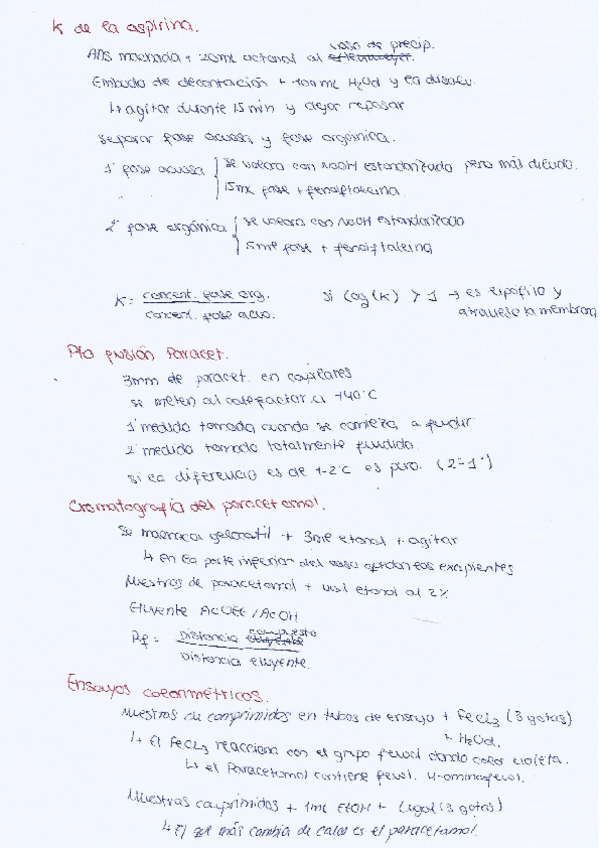 K de la aspirina.
vaso de precip.
AAS machada + 20mL octanol al erlenmeyer.
Embudo de decantación + 100 mL H2Od y la disolu.
↳ agitar durante 15 min y dejar reposar
separar fase acuosa y fase orgánica.
1º fase acuosa { se valora con NaOH estandarizado pero más diluido.
15mL fase + fenolftaleina
2º fase orgánica { se valora con NaOH estandarizado
5mL fase + fenolftaleina
K = concent. fase org. / concent. fase acuo.
si log(K) > 1 → es lipófilo y
atraviesa la membrana
Pto fusión Paracet.
3mm de paracet. en capilares
se meten al calefactor a 140ºC
1ª medida tomada cuando se comienza a fundir
2ª medida tomada totalmente fundido
si la diferencia es de 1-2ºC es puro. (2ª-1ª)
Cromatografía del paracetamol.
Se machaca gelocatil + 3ml etanol + agitar
↳ en la parte inferior del vaso quedan los excipientes
Muestras de paracetamol + etanol al 2%
Eluyente AcOEt/AcOH
Rf = Distancia eluyente compuesto / Distancia eluyente.
Ensayos colorimétricos.
Muestras de comprimidos en tubos de ensayo + FeCl3 (3 gotas)
+ H2Od.
↳ El FeCl3 reacciona con el grupo fenol dando color violeta.
↳ el Paracetamol contiene fenol. 4-aminofenol.
Muestras comprimidos + 1mL EtOH + Lugol (3 gotas)
↳ El que más cambia de color es el paracetamol.